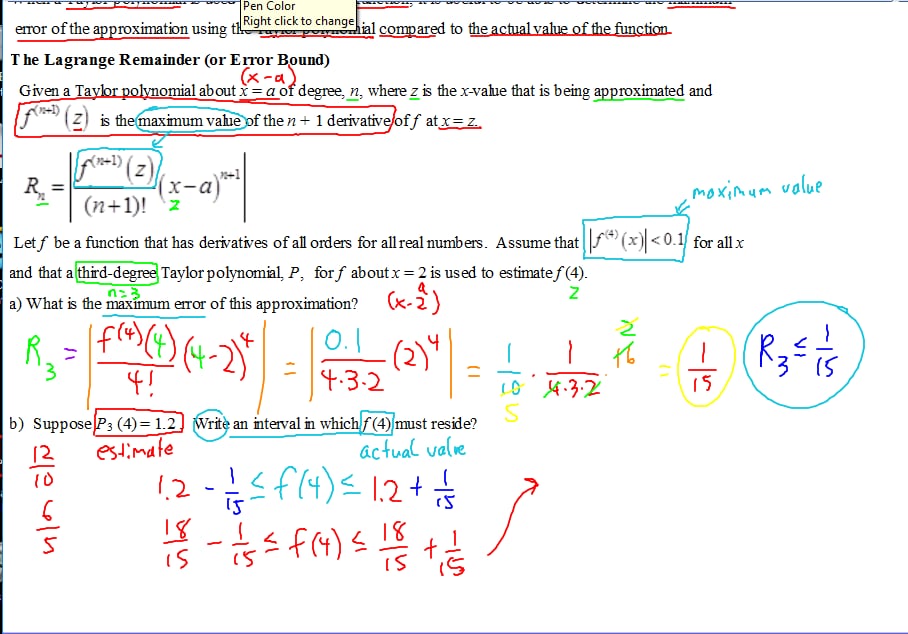 Pen Color
Right click to change
error of the approximation using the Taylor polynomial compared to the actual value of the function.
The Lagrange Remainder (or Error Bound)
(x-a)
Given a Taylor polynomial about x = a of degree, n, where z is the x-value that is being approximated and
f^(n+1) (z) is the maximum value of the n + 1 derivative of f at x = z.
R_n = | f^(n+1) (z) / (n+1)! (x-a)^n+1 |
z
maximum value
Let f be a function that has derivatives of all orders for all real numbers. Assume that |f^(4) (x)| < 0.1 for all x
and that a third-degree Taylor polynomial, P, for f about x = 2 is used to estimate f (4).
n=3
z
a
a) What is the maximum error of this approximation? (x-2)
R_3 = | f^(4)(4) / 4! (4-2)^4 | = | 0.1 / 4·3·2 (2)^4 | = 1/10 · 1/4·3·2 · 16 = 1/15 R_3 ≤ 1/15
2
5
b) Suppose P_3 (4) = 1.2. Write an interval in which f (4) must reside?
12/10 estimate actual value
6/5 1.2 - 1/15 ≤ f(4) ≤ 1.2 + 1/15
18/15 - 1/15 ≤ f(4) ≤ 18/15 + 1/15